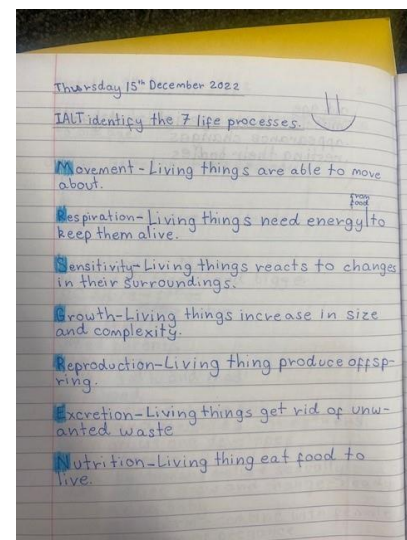 Thursday 15th December 2022
IALT identify the 7 life processes.
Movement - Living things are able to move
about.
from
food
Respiration - Living things need energy to
keep them alive.
Sensitivity - Living things reacts to changes
in their surroundings.
Growth - Living things increase in size
and complexity.
Reproduction - Living thing produce offsp-
ring.
Excretion - Living things get rid of unw-
anted waste
Nutrition - Living thing eat food to
live.